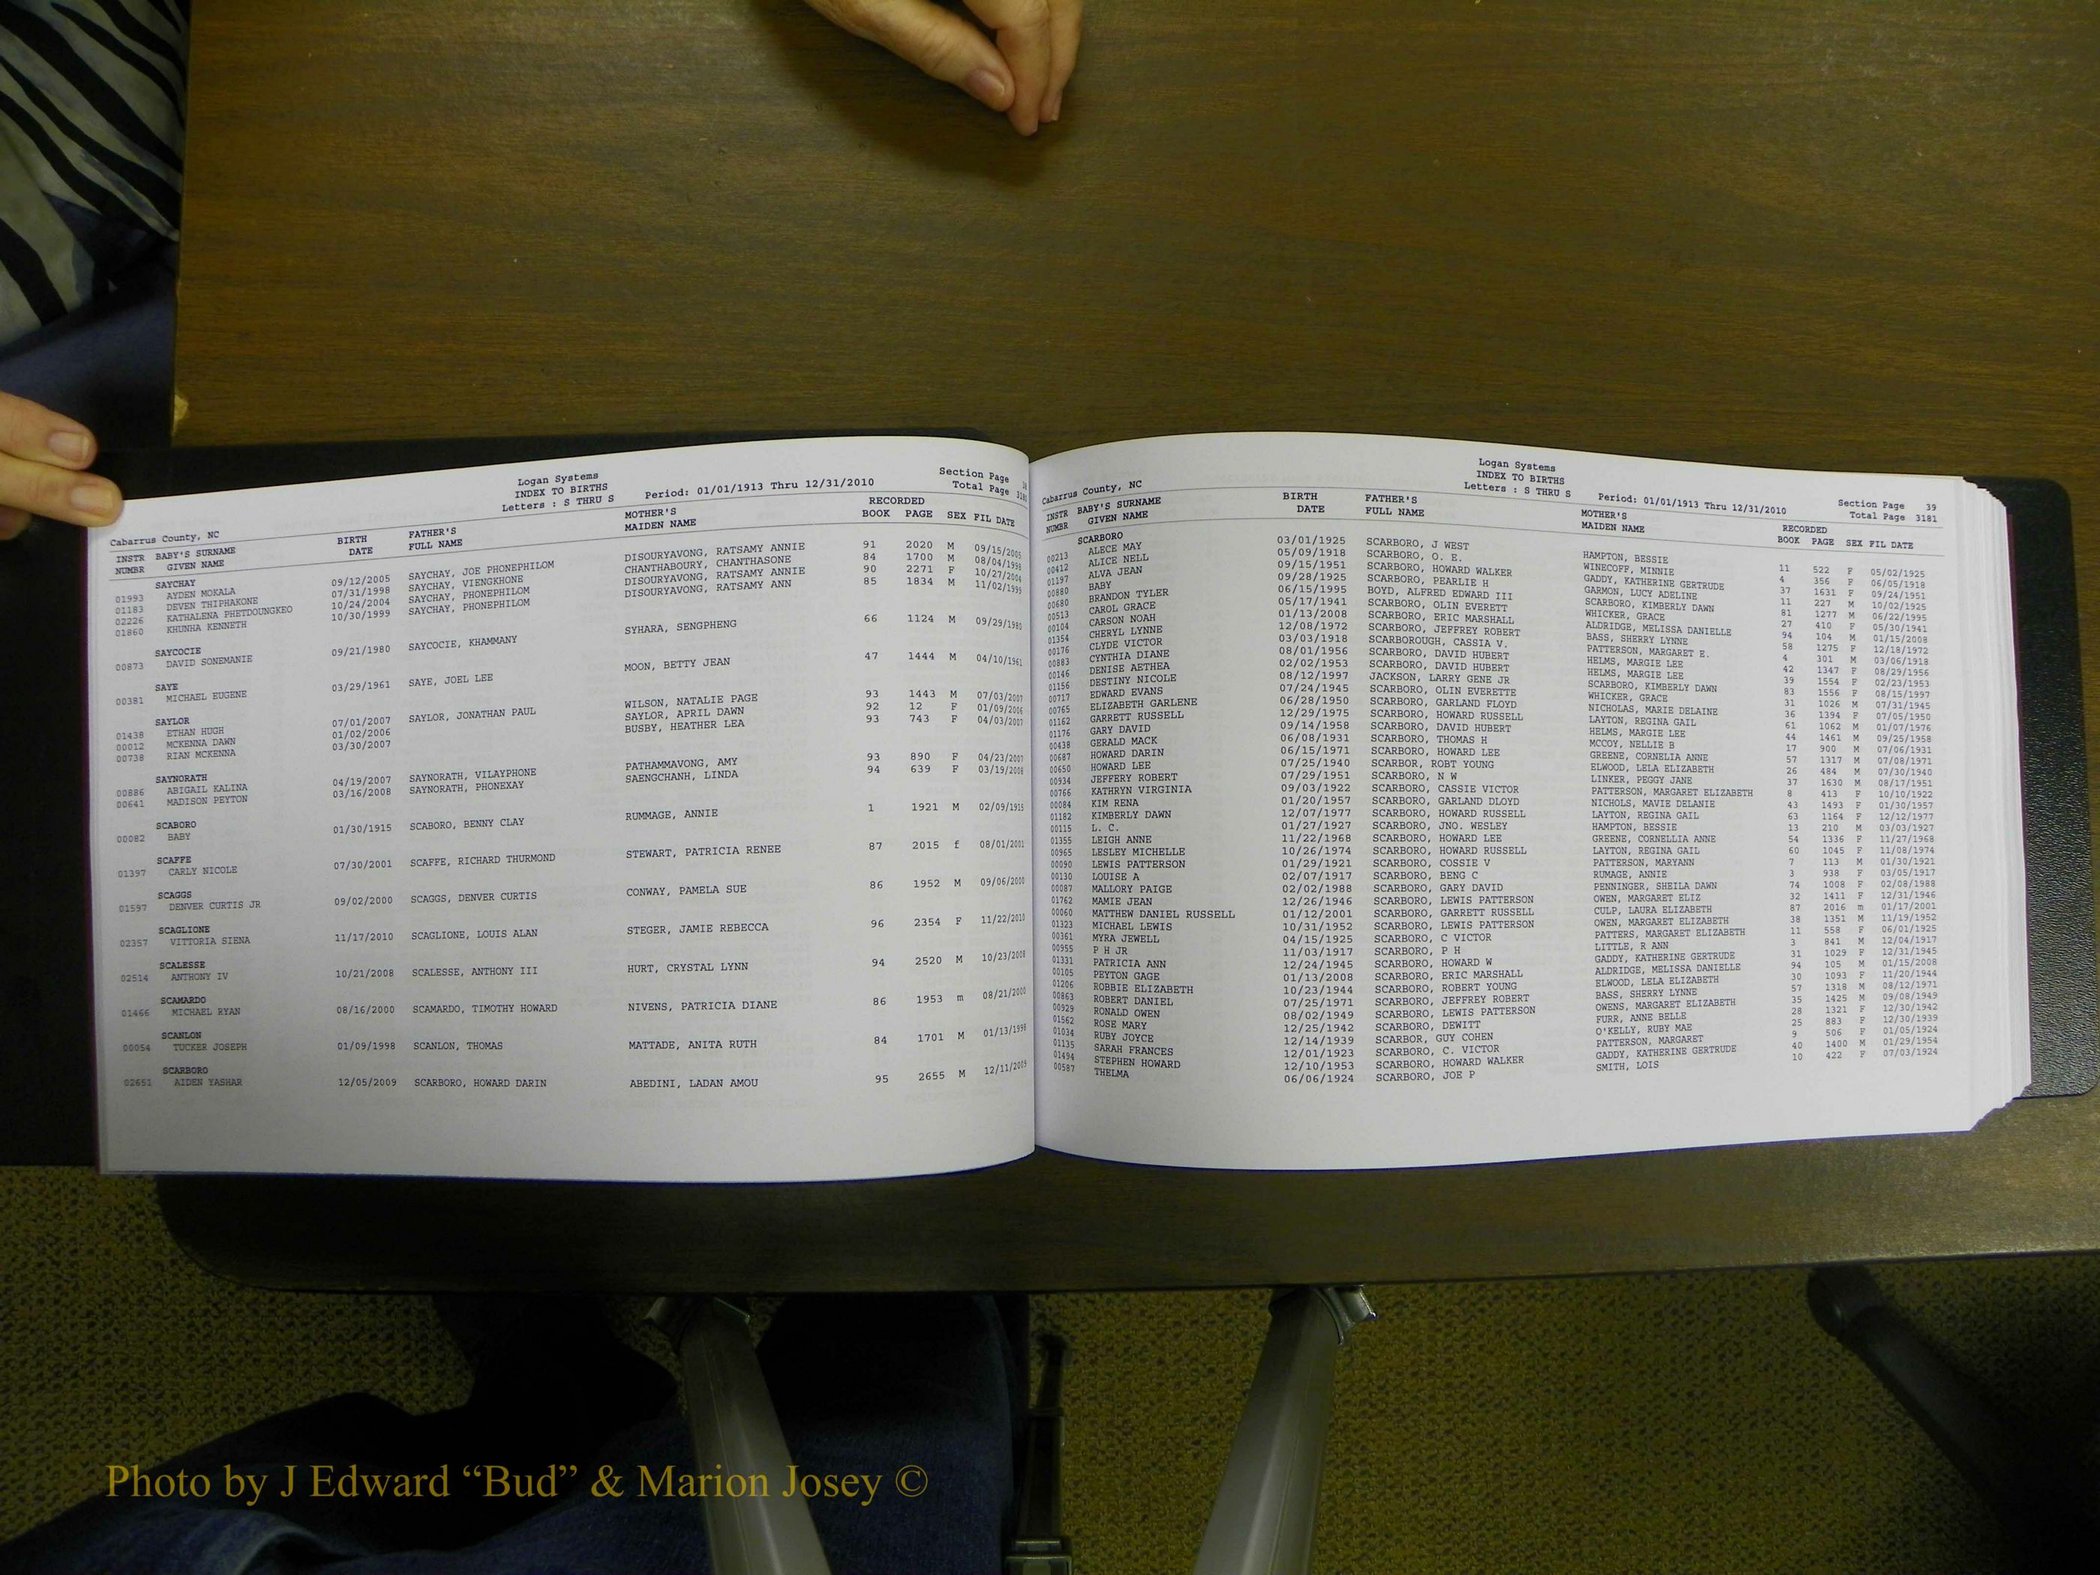 Logan Systems
INDEX TO BIRTHS
Letters : S THRU S
Period: 01/01/1913 Thru 12/31/2010
Section Page
Total Page
Cabarrus County, NC
INSTR BABY'S SURNAME BIRTH FATHER'S MOTHER'S RECORDED
NUMBR GIVEN NAME DATE FULL NAME MAIDEN NAME BOOK PAGE SEX FIL DATE
SAYCHAY
01993 AYDEN MOKALA 09/12/2005 SAYCHAY, JOE PHONEPHILOM DISOURYAVONG, RATSAMY ANNIE 91 2020 M 09/15/2005
01183 DEVEN THIPHAKONE 07/31/1998 SAYCHAY, VIENGKHONE CHANTHABOURY, CHANTHASONE 84 1700 M 08/04/1998
02226 KATHALENA PHETDOUNGKEO 10/24/2004 SAYCHAY, PHONEPHILOM DISOURYAVONG, RATSAMY ANNIE 90 2271 F 10/27/2004
01860 KHUNHA KENNETH 10/30/1999 SAYCHAY, PHONEPHILOM DISOURYAVONG, RATSAMY ANN 85 1834 M 11/02/1999
SAYCOCIE
00873 DAVID SONEMANIE 09/21/1980 SAYCOCIE, KHAMMANY SYHARA, SENGPHENG 66 1124 M 09/29/1980
SAYE
00381 MICHAEL EUGENE 03/29/1961 SAYE, JOEL LEE MOON, BETTY JEAN 47 1444 M 04/10/1961
SAYLOR
01438 ETHAN HUGH 07/01/2007 SAYLOR, JONATHAN PAUL WILSON, NATALIE PAGE 93 1443 M 07/03/2007
00012 MCKENNA DAWN 01/02/2006 SAYLOR, APRIL DAWN 92 12 F 01/09/2006
00738 RIAN MCKENNA 03/30/2007 BUSBY, HEATHER LEA 93 743 F 04/03/2007
SAYNORATH
00886 ABIGAIL KALINA 04/19/2007 SAYNORATH, VILAYPHONE PATHAMMAVONG, AMY 93 890 F 04/23/2007
00641 MADISON PEYTON 03/16/2008 SAYNORATH, PHONEXAY SAENGCHANH, LINDA 94 639 F 03/19/2008
SCABORO
00082 BABY 01/30/1915 SCABORO, BENNY CLAY RUMMAGE, ANNIE 1 1921 M 02/09/1915
SCAFFE
01397 CARLY NICOLE 07/30/2001 SCAFFE, RICHARD THURMOND STEWART, PATRICIA RENEE 87 2015 f 08/01/2001
SCAGGS
01597 DENVER CURTIS JR 09/02/2000 SCAGGS, DENVER CURTIS CONWAY, PAMELA SUE 86 1952 M 09/06/2000
SCAGLIONE
02357 VITTORIA SIENA 11/17/2010 SCAGLIONE, LOUIS ALAN STEGER, JAMIE REBECCA 96 2354 F 11/22/2010
SCALESSE
02514 ANTHONY IV 10/21/2008 SCALESSE, ANTHONY III HURT, CRYSTAL LYNN 94 2520 M 10/23/2008
SCAMARDO
01466 MICHAEL RYAN 08/16/2000 SCAMARDO, TIMOTHY HOWARD NIVENS, PATRICIA DIANE 86 1953 m 08/21/2000
SCANLON
00054 TUCKER JOSEPH 01/09/1998 SCANLON, THOMAS MATTADE, ANITA RUTH 84 1701 M 01/13/1998
SCARBORO
02651 AIDEN YASHAR 12/05/2009 SCARBORO, HOWARD DARIN ABEDINI, LADAN AMOU 95 2655 M 12/11/2009
Logan Systems
INDEX TO BIRTHS
Letters : S THRU S
Period: 01/01/1913 Thru 12/31/2010
Section Page 39
Total Page 3181
Cabarrus County, NC
INSTR BABY'S SURNAME BIRTH FATHER'S MOTHER'S RECORDED
NUMBR GIVEN NAME DATE FULL NAME MAIDEN NAME BOOK PAGE SEX FIL DATE
SCARBORO
00213 ALECE MAY 03/01/1925 SCARBORO, J WEST HAMPTON, BESSIE 11 522 F 05/02/1925
00412 ALICE NELL 05/09/1918 SCARBORO, O. E. WINECOFF, MINNIE 4 356 F 06/05/1918
01197 ALVA JEAN 09/15/1951 SCARBORO, HOWARD WALKER GADDY, KATHERINE GERTRUDE 37 1631 F 09/24/1951
00880 BABY 09/28/1925 SCARBORO, PEARLIE H GARMON, LUCY ADELINE 11 227 M 10/02/1925
00680 BRANDON TYLER 06/15/1995 BOYD, ALFRED EDWARD III SCARBORO, KIMBERLY DAWN 81 1277 M 06/22/1995
00513 CAROL GRACE 05/17/1941 SCARBORO, OLIN EVERETT WHICKER, GRACE 27 410 F 05/30/1941
00104 CARSON NOAH 01/13/2008 SCARBORO, ERIC MARSHALL ALDRIDGE, MELISSA DANIELLE 94 104 M 01/15/2008
01354 CHERYL LYNNE 12/08/1972 SCARBORO, JEFFREY ROBERT BASS, SHERRY LYNNE 58 1275 F 12/18/1972
00176 CLYDE VICTOR 03/03/1918 SCARBOROUGH, CASSIA V. PATTERSON, MARGARET E. 4 301 M 03/06/1918
00883 CYNTHIA DIANE 08/01/1956 SCARBORO, DAVID HUBERT HELMS, MARGIE LEE 42 1347 F 08/29/1956
00146 DENISE AETHEA 02/02/1953 SCARBORO, DAVID HUBERT HELMS, MARGIE LEE 39 1554 F 02/23/1953
01156 DESTINY NICOLE 08/12/1997 JACKSON, LARRY GENE JR SCARBORO, KIMBERLY DAWN 83 1556 F 08/15/1997
00717 EDWARD EVANS 07/24/1945 SCARBORO, OLIN EVERETTE WHICKER, GRACE 31 1026 M 07/31/1945
00765 ELIZABETH GARLENE 06/28/1950 SCARBORO, GARLAND FLOYD NICHOLAS, MARIE DELAINE 36 1394 F 07/05/1950
01162 GARRETT RUSSELL 12/29/1975 SCARBORO, HOWARD RUSSELL LAYTON, REGINA GAIL 61 1062 M 01/07/1976
01176 GARY DAVID 09/14/1958 SCARBORO, DAVID HUBERT HELMS, MARGIE LEE 44 1461 M 09/25/1958
00438 GERALD MACK 06/08/1931 SCARBORO, THOMAS H MCCOY, NELLIE B 17 900 M 07/06/1931
00687 HOWARD DARIN 06/15/1971 SCARBORO, HOWARD LEE GREENE, CORNELIA ANNE 57 1317 M 07/08/1971
00650 HOWARD LEE 07/25/1940 SCARBOR, ROBT YOUNG ELWOOD, LELA ELIZABETH 26 484 M 07/30/1940
00934 JEFFERY ROBERT 07/29/1951 SCARBORO, N W LINKER, PEGGY JANE 37 1630 M 08/17/1951
00766 KATHRYN VIRGINIA 09/03/1922 SCARBORO, CASSIE VICTOR PATTERSON, MARGARET ELIZABETH 8 413 F 10/10/1922
00084 KIM RENA 01/20/1957 SCARBORO, GARLAND DLOYD NICHOLS, MAVIE DELANIE 43 1493 F 01/30/1957
01182 KIMBERLY DAWN 12/07/1977 SCARBORO, HOWARD RUSSELL LAYTON, REGINA GAIL 63 1164 F 12/12/1977
00115 L. C. 01/27/1927 SCARBORO, JNO. WESLEY HAMPTON, BESSIE 13 210 M 03/03/1927
01355 LEIGH ANNE 11/22/1968 SCARBORO, HOWARD LEE GREENE, CORNELLIA ANNE 54 1336 F 11/27/1968
00965 LESLEY MICHELLE 10/26/1974 SCARBORO, HOWARD RUSSELL LAYTON, REGINA GAIL 60 1045 F 11/08/1974
00090 LEWIS PATTERSON 01/29/1921 SCARBORO, COSSIE V PATTERSON, MARYANN 7 113 M 01/30/1921
00130 LOUISE A 02/07/1917 SCARBORO, BENG C RUMAGE, ANNIE 3 938 F 03/05/1917
00087 MALLORY PAIGE 02/02/1988 SCARBORO, GARY DAVID PENNINGER, SHEILA DAWN 74 1008 F 02/08/1988
01762 MAMIE JEAN 12/26/1946 SCARBORO, LEWIS PATTERSON OWEN, MARGARET ELIZ 32 1411 F 12/31/1946
00060 MATTHEW DANIEL RUSSELL 01/12/2001 SCARBORO, GARRETT RUSSELL CULP, LAURA ELIZABETH 87 2016 m 01/17/2001
01323 MICHAEL LEWIS 10/31/1952 SCARBORO, LEWIS PATTERSON OWEN, MARGARET ELIZABETH 38 1351 M 11/19/1952
00361 MYRA JEWELL 04/15/1925 SCARBORO, C VICTOR PATTERS, MARGARET ELIZABETH 11 558 F 06/01/1925
00955 P H JR 11/03/1917 SCARBORO, P H LITTLE, R ANN 3 841 M 12/04/1917
01331 PATRICIA ANN 12/24/1945 SCARBORO, HOWARD W GADDY, KATHERINE GERTRUDE 31 1029 F 12/31/1945
00105 PEYTON GAGE 01/13/2008 SCARBORO, ERIC MARSHALL ALDRIDGE, MELISSA DANIELLE 94 105 M 01/15/2008
01206 ROBBIE ELIZABETH 10/23/1944 SCARBORO, ROBERT YOUNG ELWOOD, LELA ELIZABETH 30 1093 F 11/20/1944
00863 ROBERT DANIEL 07/25/1971 SCARBORO, JEFFREY ROBERT BASS, SHERRY LYNNE 57 1318 M 08/12/1971
00929 RONALD OWEN 08/02/1949 SCARBORO, LEWIS PATTERSON OWENS, MARGARET ELIZABETH 35 1425 M 09/08/1949
01562 ROSE MARY 12/25/1942 SCARBORO, DEWITT FURR, ANNE BELLE 28 1321 F 12/30/1942
01034 RUBY JOYCE 12/14/1939 SCARBOR, GUY COHEN O'KELLY, RUBY MAE 25 883 F 12/30/1939
01135 SARAH FRANCES 12/01/1923 SCARBORO, C. VICTOR PATTERSON, MARGARET 9 506 F 01/05/1924
01494 STEPHEN HOWARD 12/10/1953 SCARBORO, HOWARD WALKER GADDY, KATHERINE GERTRUDE 40 1400 M 01/29/1954
00587 THELMA 06/06/1924 SCARBORO, JOE P SMITH, LOIS 10 422 F 07/03/1924
Photo by J Edward “Bud” & Marion Josey ©